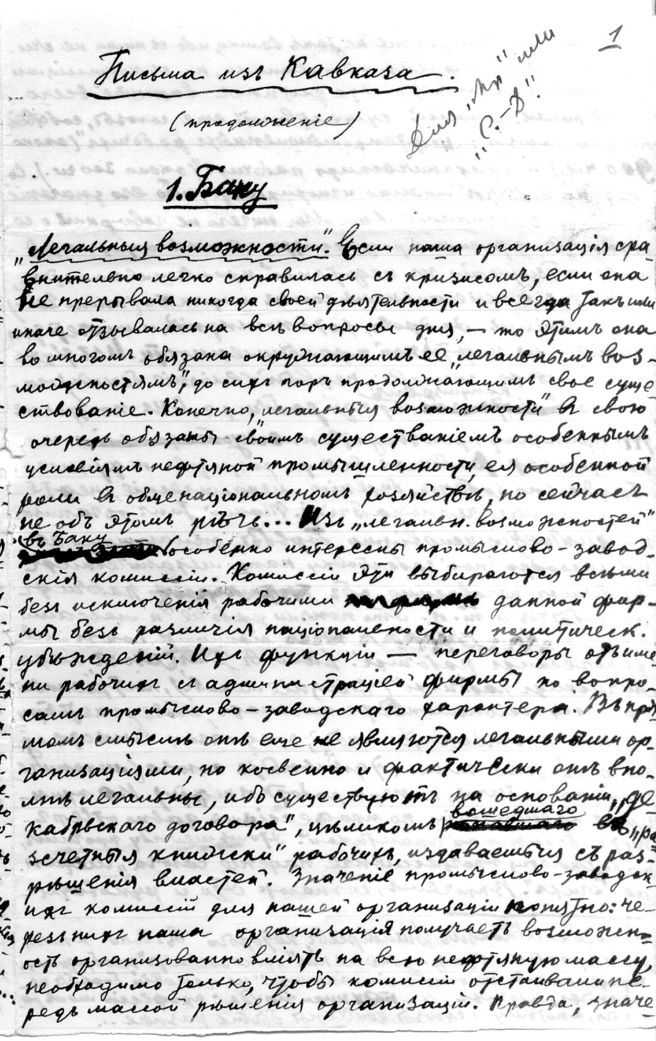 1
Письма изъ Кавказа.
(продолженіе)
Для „Пр" или
„С.-Д."
1. Баку
„Легальныя возможности". Если наша организація сра-
внительно легко справилась съ кризисомъ, если она
не прерывала никогда своей дѣятельности и всегда такъ или
иначе отзывалась на всѣ вопросы дня, — то этимъ она
во многомъ обязана окружающимъ ее „легальнымъ воз-
можностямъ", до сихъ поръ продолжающимъ свое суще-
ствованіе. Конечно, „легальныя возможности" въ свою
очередь обязаны своимъ существаніемъ особеннымъ
условіямъ нефтяной промышленности, ея особенной
роли въ общенаціональномъ хозяйствѣ, но сейчасъ
не объ этомъ рѣчь... Изъ „легальн. возможностей"
въ Баку
особенно интересны промыслово-завод-
скія комиссіи. Комиссіи эти выбираются всѣми
безъ исключенія рабочими данной фир-
мы безъ различія національности и политическ.
убѣжденій. Ихъ функціи — переговоры отъ име-
ни рабочихъ съ администраціей фирмы по вопро-
самъ промыслово-заводскаго характера. Въ пря
момъ смыслѣ онѣ еще не являются легальными ор-
ганизаціями, но косвенно и фактически онѣ впо-
лнѣ легальны, ибо существуютъ на основаніи „де-
кабрьскаго договора", цѣликомъ вошедшаго въ „ра
зсчетныя книжки" рабочихъ, издаваемыя съ раз-
рѣшенія властей. Значеніе промыслово-заводск-
ихъ комиссій для нашей организаціи понятно: че-
резъ нихъ наша организація получаетъ возможн-
ость организованно вліять на всю нефтяную массу,
необходимо только, чтобы комиссіи отстаивали пе-
редъ массой рѣшенія организаціи. Правда, значе-